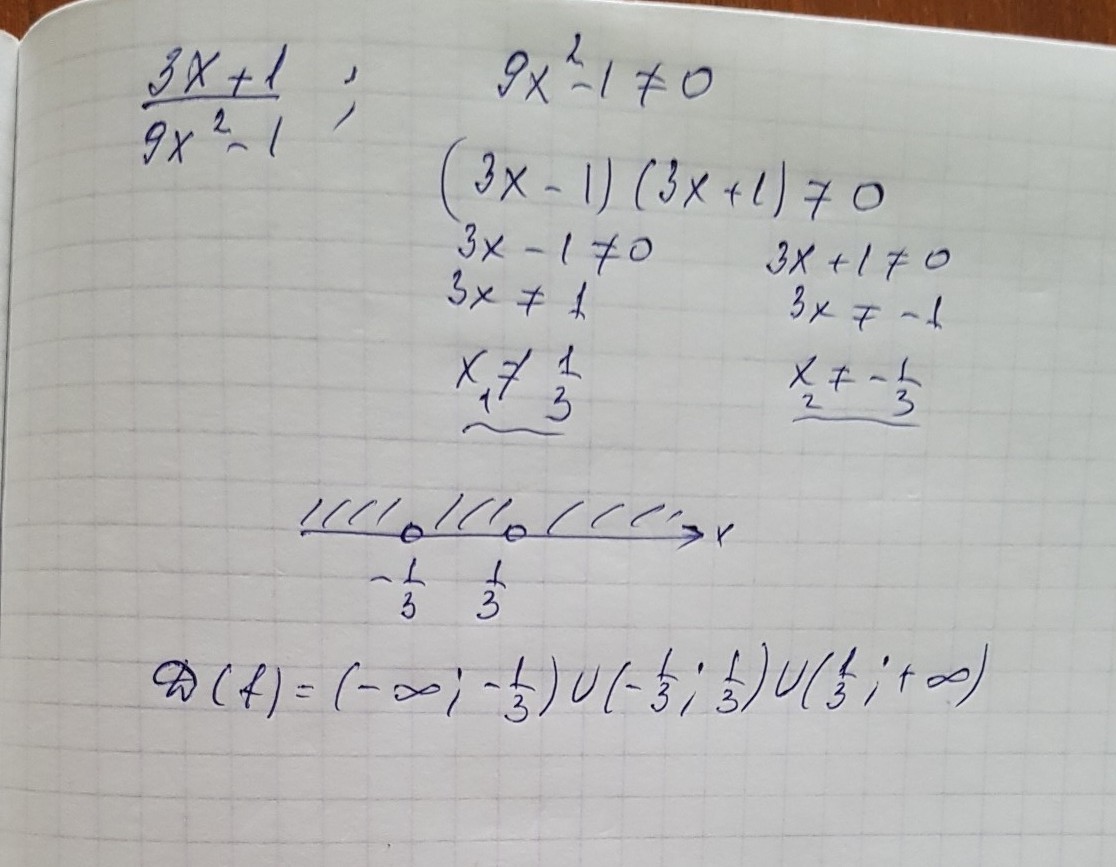 (3x+1)/(9x²-1) ; 9x²-1≠0
(3x-1)(3x+1)≠0
3x-1≠0 3x+1≠0
3x≠1 3x≠-1
x₁≠1/3 x₂≠-1/3
x
-1/3 1/3
D(f)=(-∞;-1/3)∪(-1/3;1/3)∪(1/3;+∞)